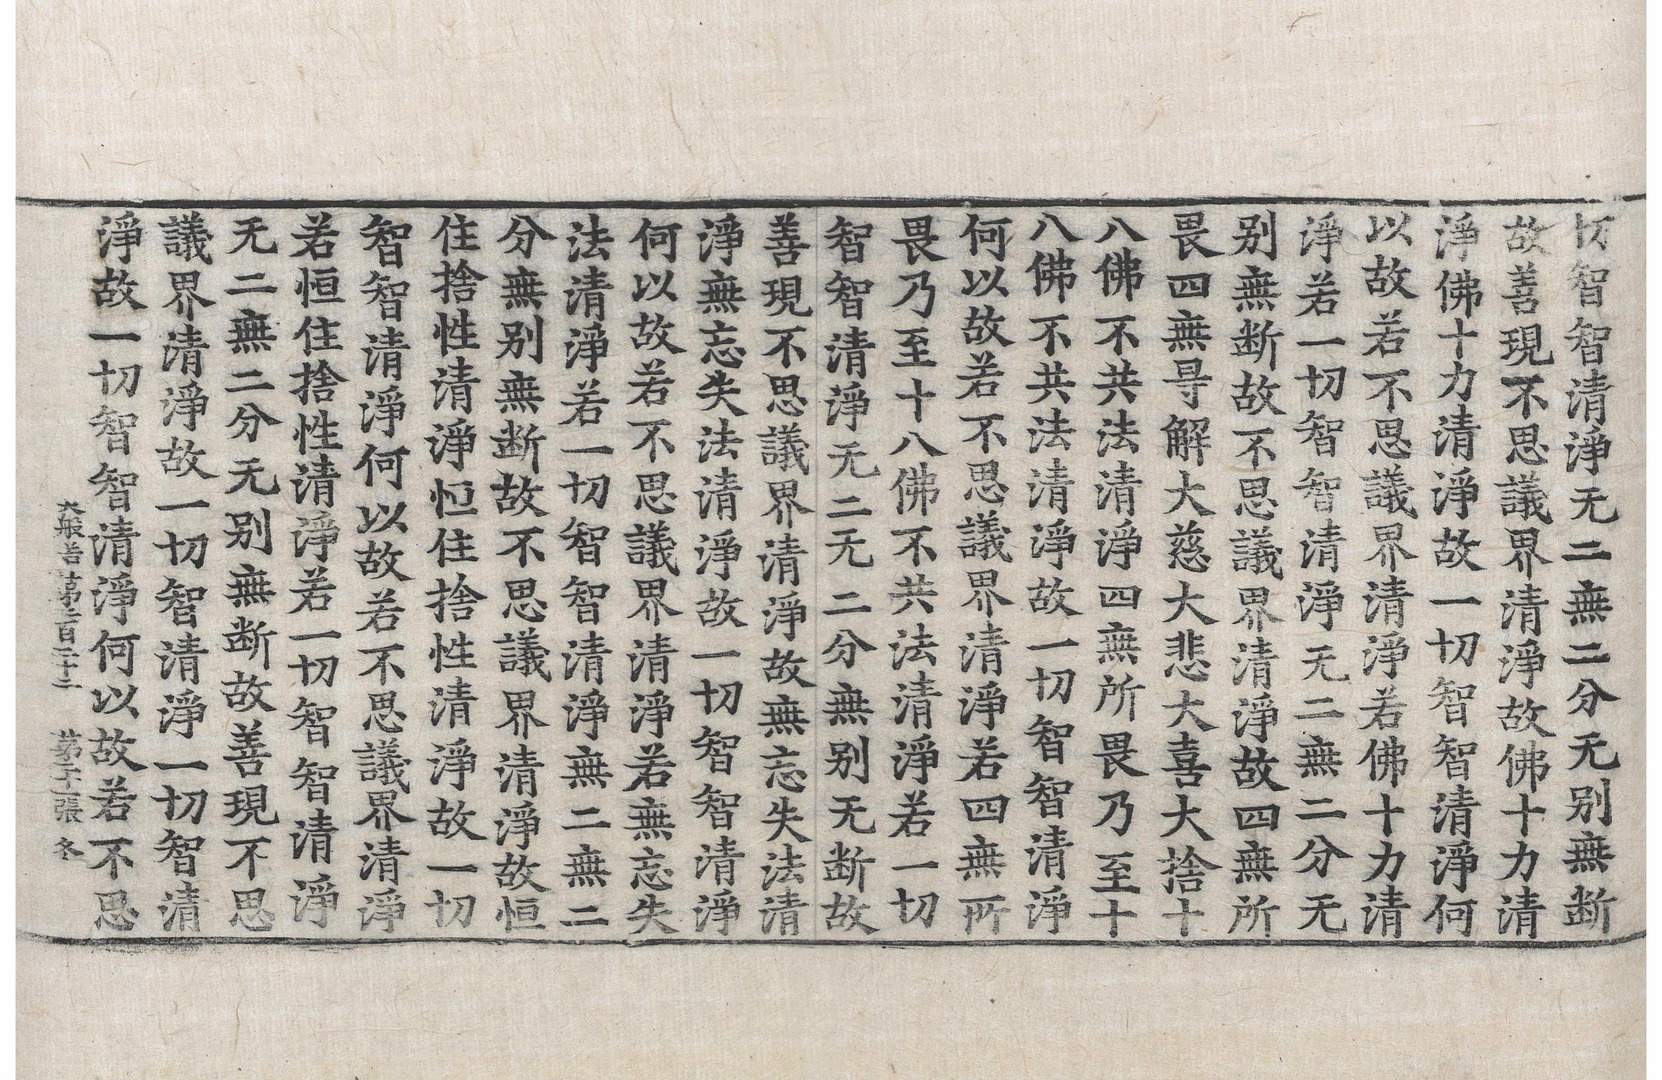 切智智清淨无二無二分无别無断
故善現不思議界清淨故佛十力清
淨佛十力清淨故一切智智清淨何
以故若不思議界清淨若佛十力清
淨若一切智智清淨无二無二分无
别無断故不思議界清淨故四無所
畏四無㝵解大慈大悲大喜大捨十
八佛不共法清淨四無所畏乃至十
八佛不共法清淨故一切智智清淨
何以故若不思議界清淨若四無所
畏乃至十八佛不共法清淨若一切
智智清淨无二无二分無别无断故
善現不思議界清淨故無忘失法清
淨無忘失法清淨故一切智智清淨
何以故若不思議界清淨若無忘失
法清淨若一切智智清淨無二無二
分無别無断故不思議界清淨故恒
住捨性清淨恒住捨性清淨故一切
智智清淨何以故若不思議界清淨
若恒住捨性清淨若一切智智清淨
无二無二分无别無断故善現不思
議界清淨故一切智清淨一切智清
淨故一切智智清淨何以故若不思
大般若第二百二十二 第張 冬